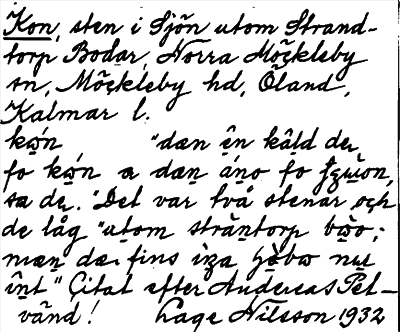 Kon, sten i Sjön utom Strand-
torp Bodar, Norra Möckleby
sn, Möckleby hd, Öland,
Kalmar l.
kǫ́n "dæn ên kåld de
fo kǫ́n a dæn áno fo
sa de. "Det var två stenar och
de låg "utom stràntorp
mæn dæ fins iŋa nu
înt" Citat efter Andereas Pet-
vänd! Lage Nilsson 1932